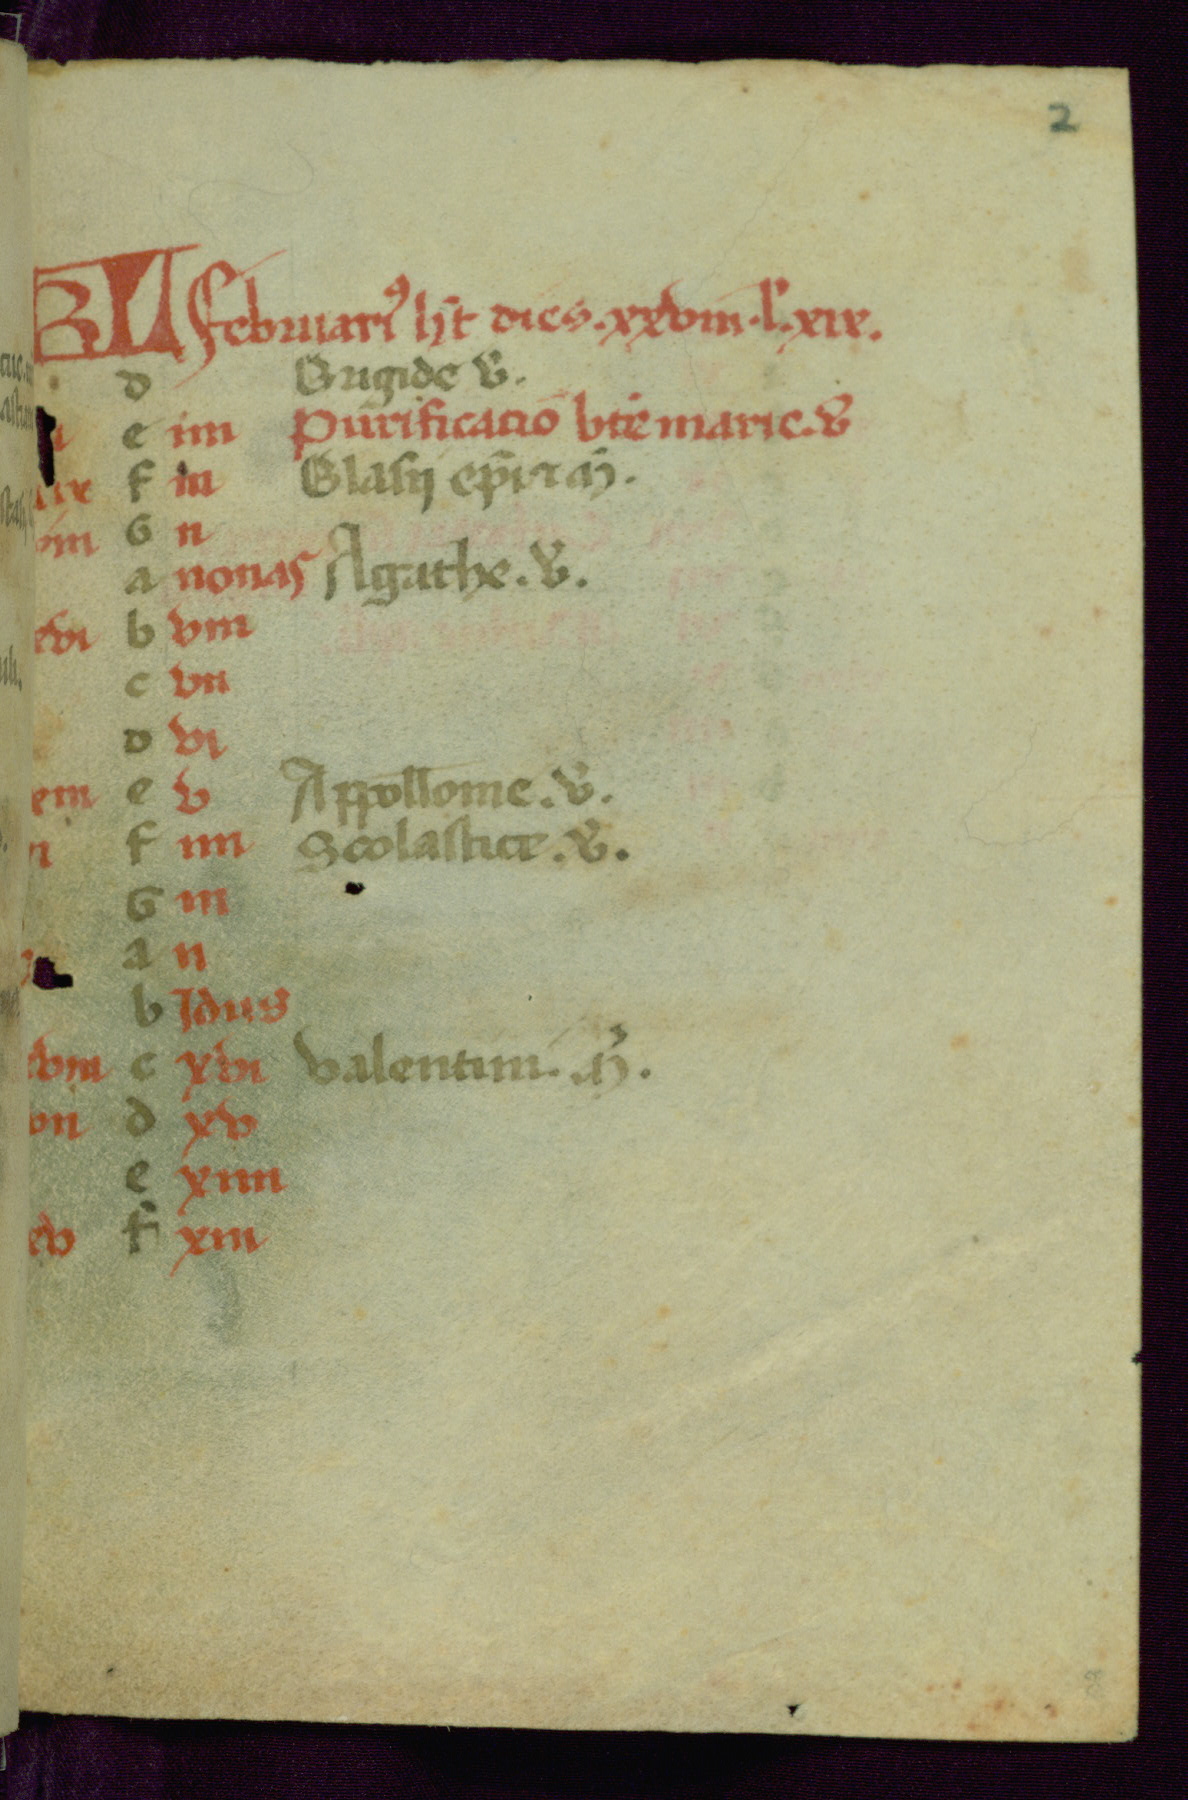 2
KL februari⁹ hn̄t dies. xxviii. l'. xix.
d Brigide v̄.
e iiii Purificatio bt̄e marie. v̄
f iii Blasij ep̄i ⁊ m̄.
G ii
viii
a nonas Agathe. v̄.
xvi b viii
c vii
d vi
v e v Appollonie. v̄.
f iiii Scolastice. v̄.
G iii
a ii
b Idus
xviii c xvi Valentini. m̄.
vii d xv
e xiiii
xv f xiii